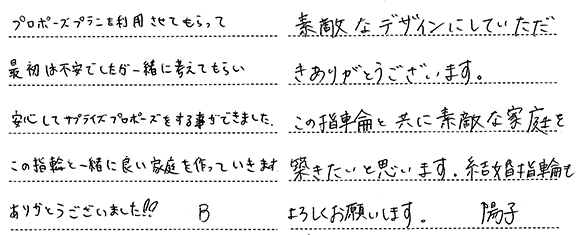 プロポーズプランを利用させてもらって
最初は不安でしたが一緒に考えてもらい
安心してサプライズプロポーズをする事ができました。
この指輪と一緒に良い家庭を作っていきます
ありがとうございました!! B
素敵なデザインにしていただ
きありがとうございます。
この指輪と共に素敵な家庭を
築きたいと思います。結婚指輪も
よろしくお願いします。 陽子